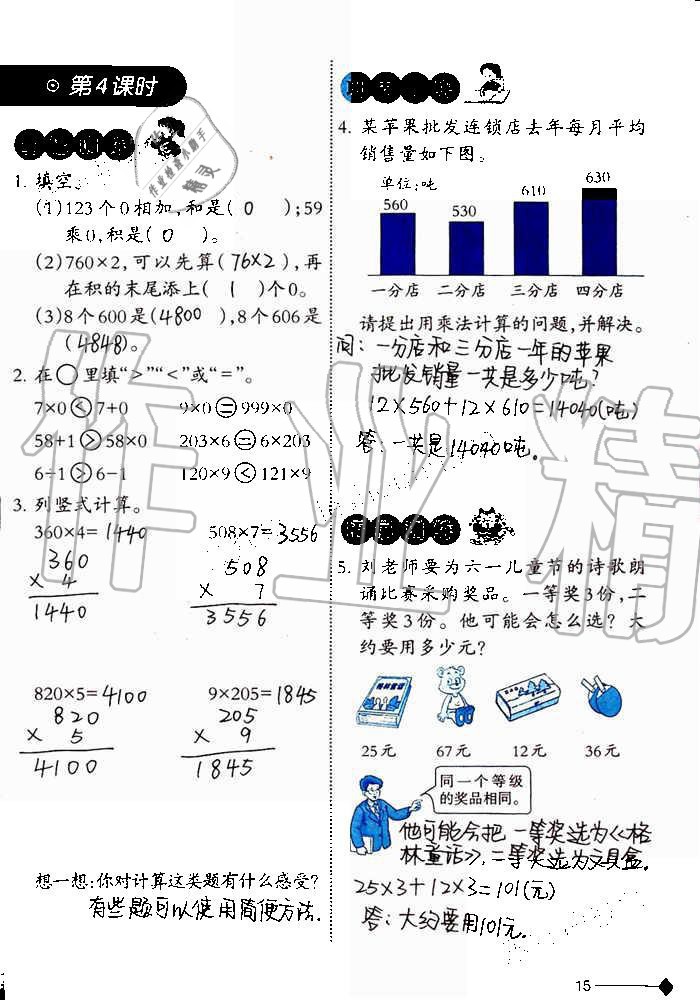 第4课时
1. 填空。
(1)123个0相加,和是( 0 );59
乘0,积是( 0 )。
(2)760×2,可以先算(76×2),再
在积的末尾添上( 1 )个0。
(3)8个600是(4800),8个606是
(4848)。
2. 在○里填“>”“<”或“=”。
7×0<7+0 9×0=999×0
58+1>58×0 203×6=6×203
6-1>6-1 120×9<121×9
3. 列竖式计算。
360×4=1440 508×7=3556
360 508
× 4 × 7
1440 3556
820×5=4100 9×205=1845
820 205
× 5 × 9
4100 1845
想一想:你对计算这类题有什么感受?
有些题可以使用简便方法.
4. 某苹果批发连锁店去年每月平均
销售量如下图。
单位:吨
560 530 610 630
一分店 二分店 三分店 四分店
请提出用乘法计算的问题,并解决。
问:一分店和三分店一年的苹果
批发销量一共是多少吨?
12×560+12×610=14040(吨)
答:一共是14040吨.
5. 刘老师要为六一儿童节的诗歌朗
诵比赛采购奖品。一等奖3份,二
等奖3份。他可能会怎么选?大
约要用多少元?
格林童话
25元 67元 12元 36元
同一个等级
的奖品相同。
他可能会把一等奖选为《格
林童话》,二等奖选为文具盒.
25×3+12×3=101(元)
答:大约要用101元.
15
作业精
作业检查小助手
精灵